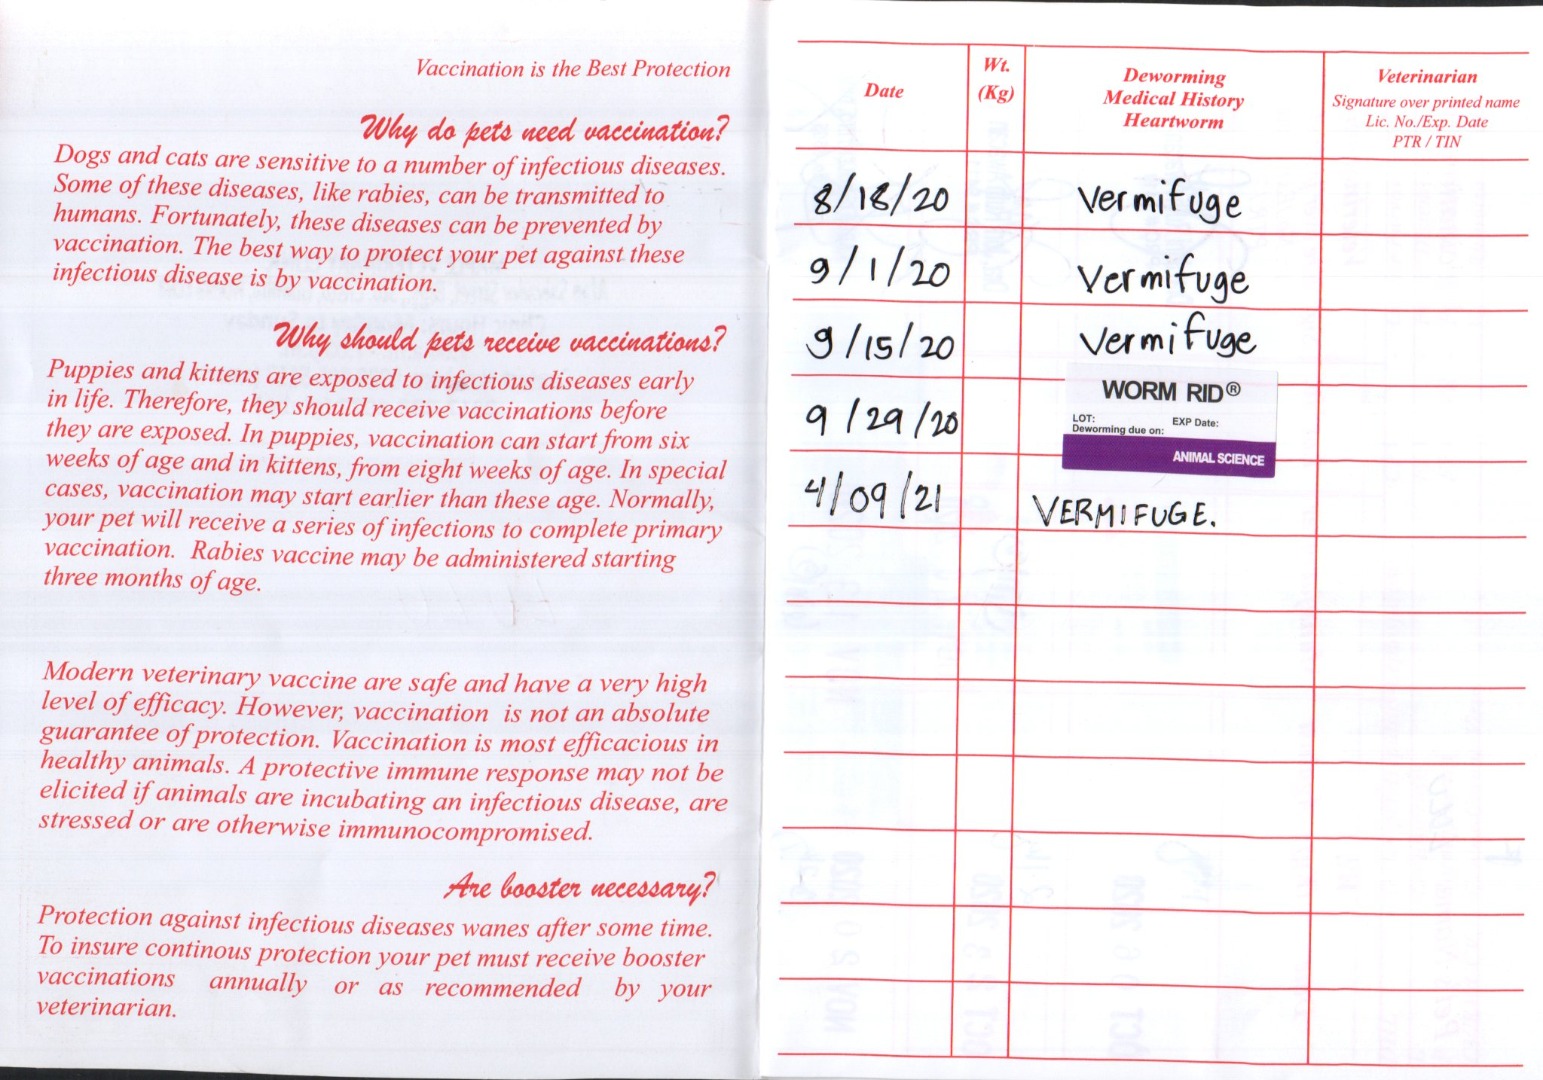 Vaccination is the Best Protection
Why do pets need vaccination?
Dogs and cats are sensitive to a number of infectious diseases.
Some of these diseases, like rabies, can be transmitted to
humans. Fortunately, these diseases can be prevented by
vaccination. The best way to protect your pet against these
infectious disease is by vaccination.
Why should pets receive vaccinations?
Puppies and kittens are exposed to infectious diseases early
in life. Therefore, they should receive vaccinations before
they are exposed. In puppies, vaccination can start from six
weeks of age and in kittens, from eight weeks of age. In special
cases, vaccination may start earlier than these age. Normally,
your pet will receive a series of infections to complete primary
vaccination. Rabies vaccine may be administered starting
three months of age.
Modern veterinary vaccine are safe and have a very high
level of efficacy. However, vaccination is not an absolute
guarantee of protection. Vaccination is most efficacious in
healthy animals. A protective immune response may not be
elicited if animals are incubating an infectious disease, are
stressed or are otherwise immunocompromised.
Are booster necessary?
Protection against infectious diseases wanes after some time.
To insure continous protection your pet must receive booster
vaccinations annually or as recommended by your
veterinarian.
Date
Wt.
(Kg)
Deworming
Medical History
Heartworm
Veterinarian
Signature over printed name
Lic. No./Exp. Date
PTR / TIN
8/18/20 Vermifuge
9/1/20 Vermifuge
9/15/20 Vermifuge
9/29/20
WORM RID®
LOT: EXP Date:
Deworming due on:
ANIMAL SCIENCE
4/09/21 VERMIFUGE.